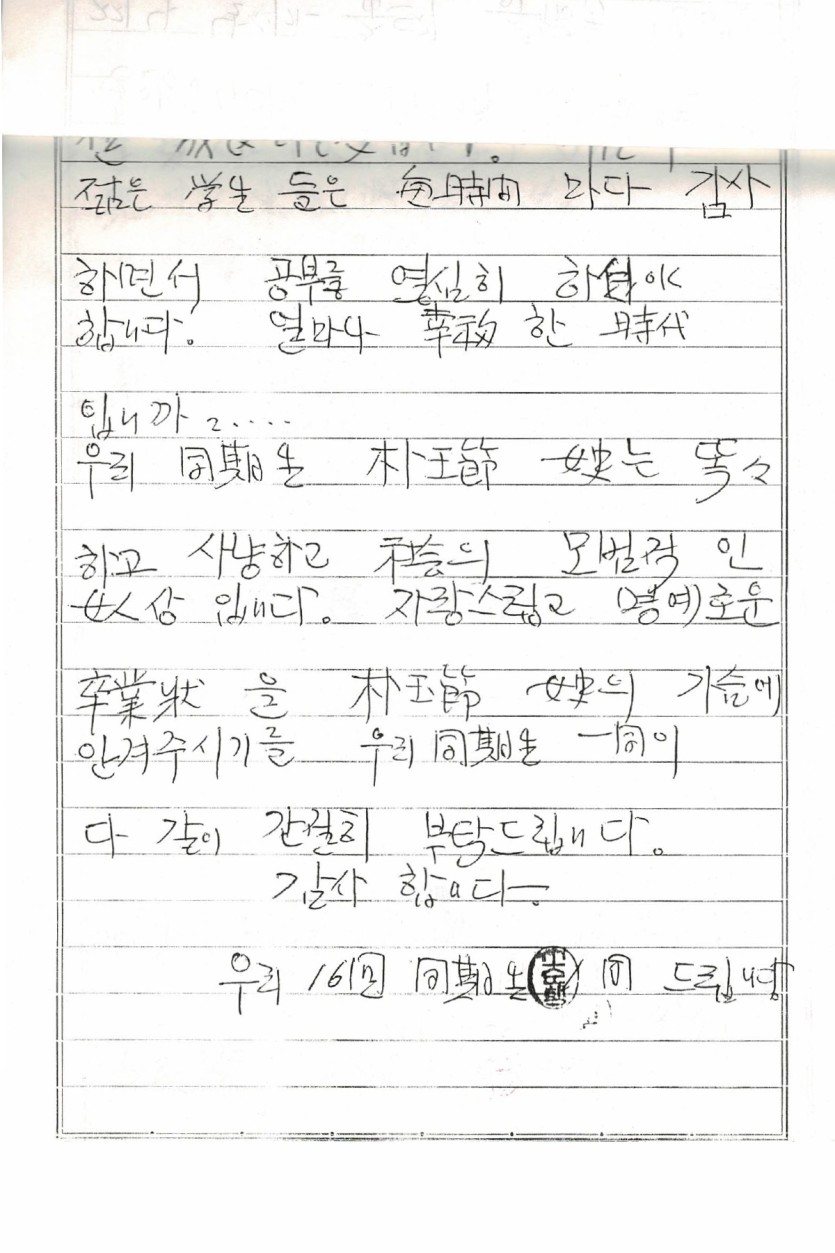 젊은 学生 들은 每時間 마다 감사
하면서 공부를 열심히 하셔야
합니다. 얼마나 幸福 한 時代
입니까 ?....
우리 同期生 朴玉節 女史는 똑々
하고 상냥하고 社会의 모범적 인
女人상 입니다. 자랑스럽고 명예로운
卒業狀 을 朴玉節 女史의 가슴에
안겨주시기를 우리 同期生 一同이
다 같이 간절히 부탁드립니다.
감사 합니다.
우리 16回 同期生 同 드립니다